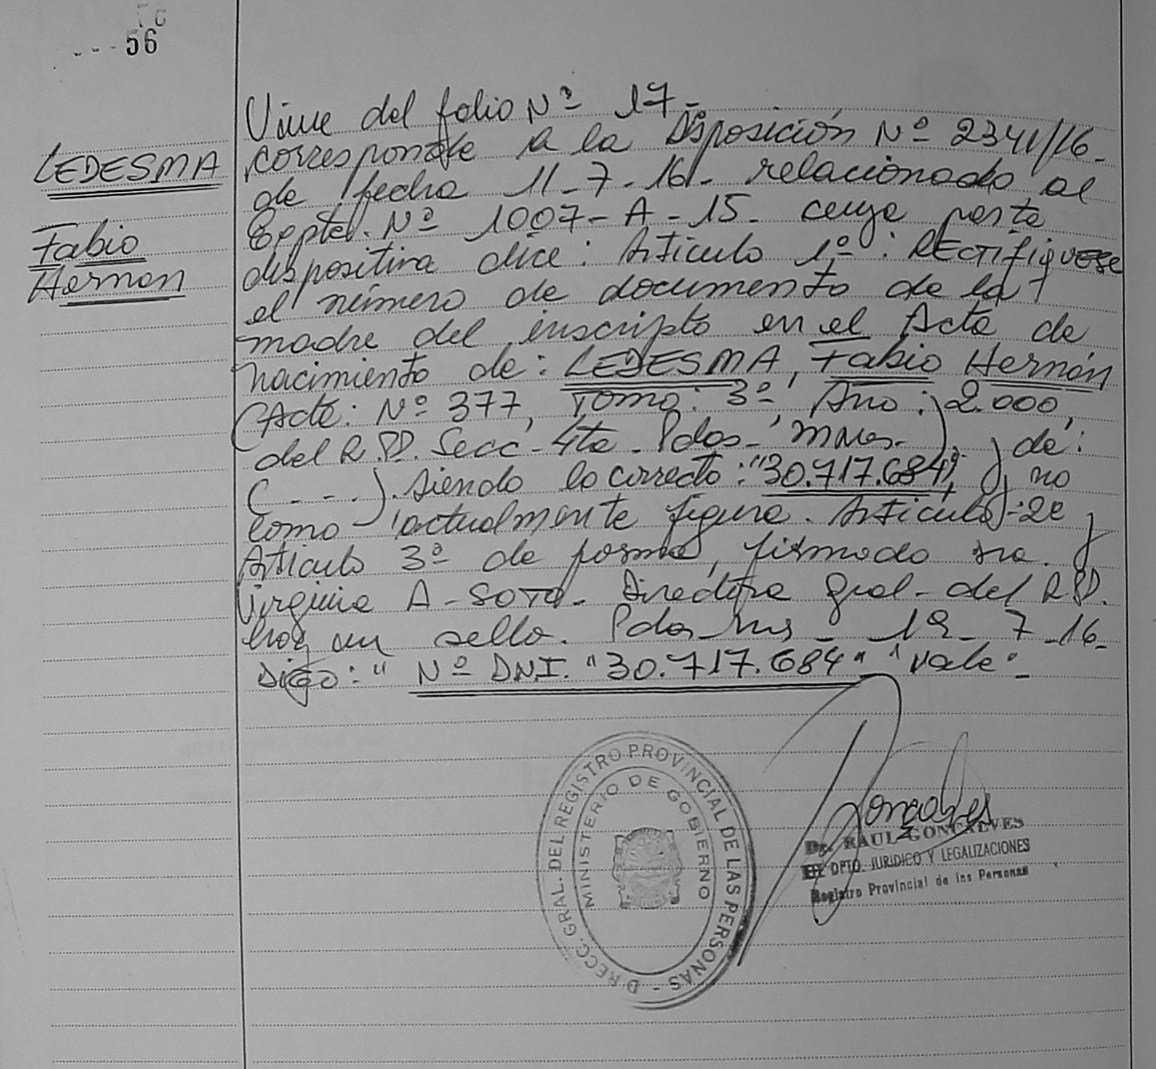 56
LEDESMA
Fabio
Hernán
Viene del folio Nº 17-
correspondte a la Disposición Nº 2341/16-
de fecha 11-7-16- relacionado al
Expte. Nº 1007-A-15- cuya parte
dispositiva dice: Artículo 1º: RECtifiquese
el número de documento de la
madre del inscripto en el Acta de
nacimiento de: LEDESMA, Fabio Hernán
(Acta: Nº 377, Tomo: 3º, Año: 2.000,
del R.P.P. Secc- 4ta- Pdas-, Mnes-). de:
(- - -). siendo lo correcto: "30.717.684", y no
como actualmente figura. Artículo 2º y
Artículo 3º de forma, firmado Sra.
Virginia A- SOTO- Directora Gral- del R.P.P.
hay un sello. Pdas-Mns- 19-7-16-
DIGO: " Nº DNI. "30.717.684" "Vale"-
DIRECC. GRAL. DEL REGISTRO PROVINCIAL DE LAS PERSONAS -
MINISTERIO DE GOBIERNO
Gonçalves
Dr. RAUL GONCALVES
DPTO. JURIDICO Y LEGALIZACIONES
Registro Provincial de las Personas